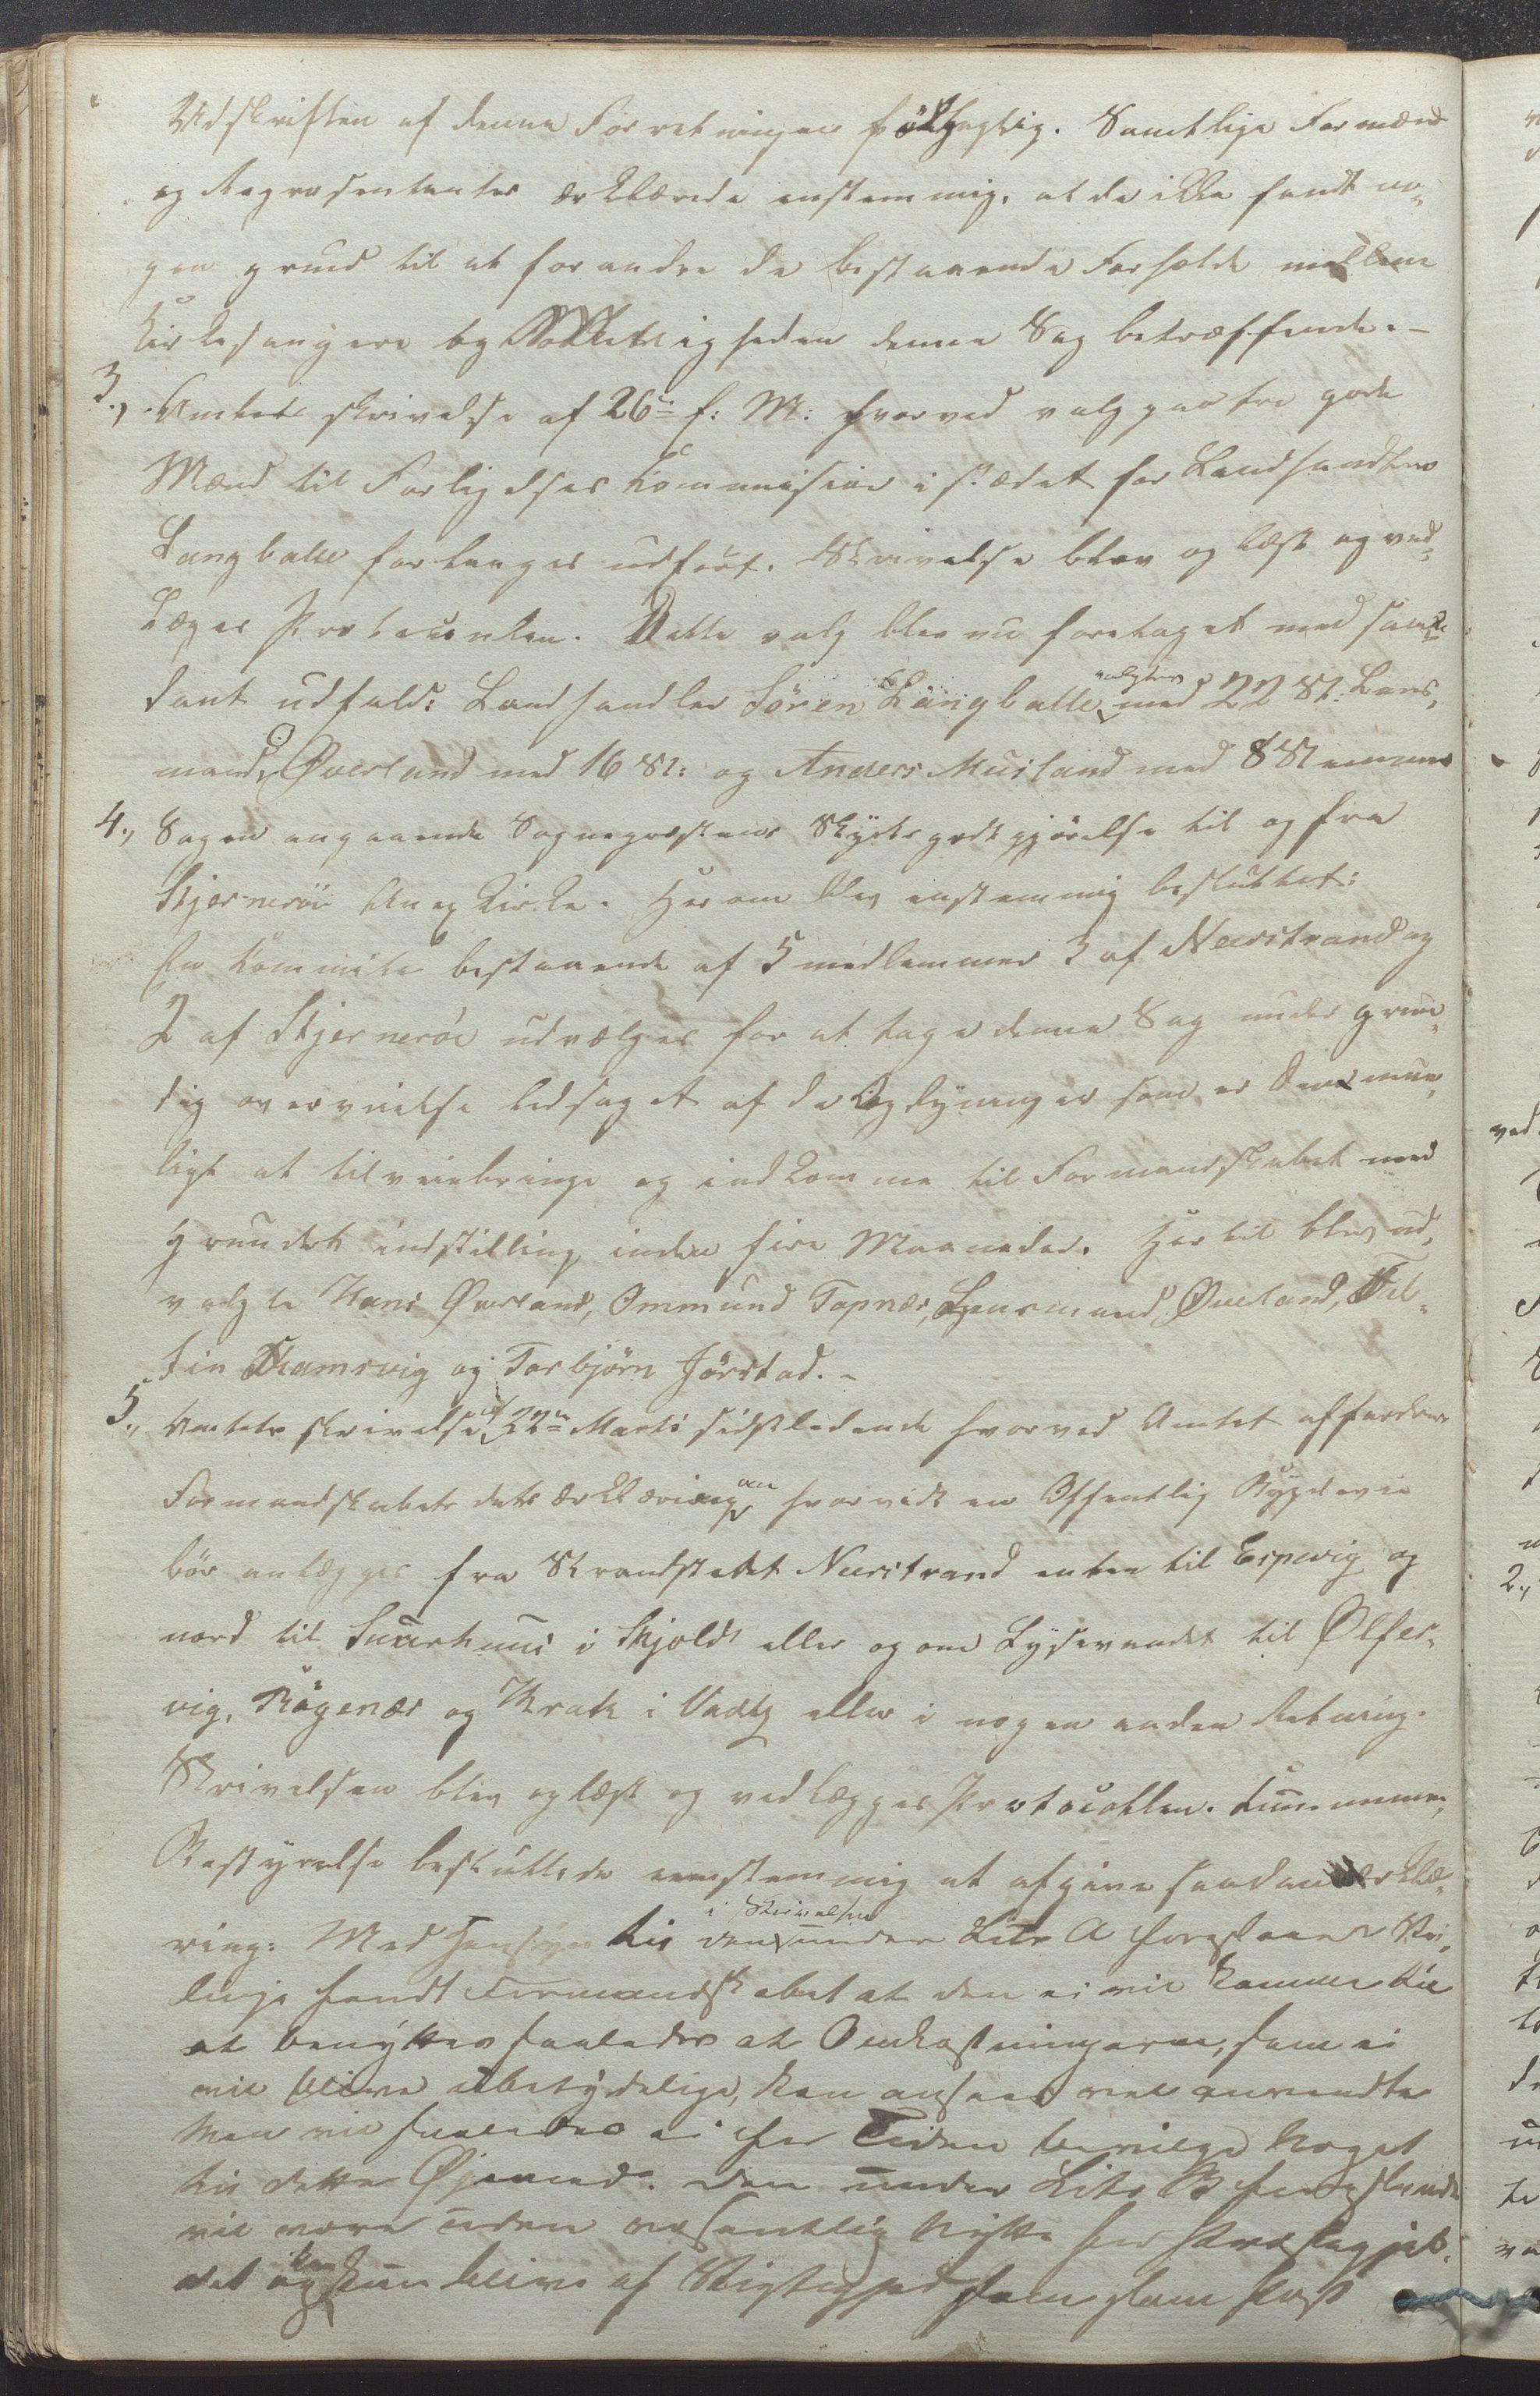 Udskriften af denne Forretningen følagtig. Samtlige Formænd
og Repræsentanter erklærede enstemmig, at de ikke fandt no-
gen grund til at forandre de bestaaende Forholde mellem
Kirkesangere og denne Sag betræffende.-
3., Amtets skrivelse af 26de f: M: hvorved valg paa tre gode
Mænd til Forligelses Kommission i stædet for Landhandler
Langballe forlanges udført. Skrivelse blev oplæst og ved-
lægges Protocollen. Dette valg blev nu foretaget med saa-
dant udfald: Landhandler Søren Langballe valgtes med 22 St. Lens-
mand Øverland med 16 St: og Anders Musland med 8 Stemmer
4., Sagen angaaende Sognepræstens Skydsgodtgjørelse til og fra
Stjernerøe Anexkirke. Herom blev enstemmig besluttet:
En Kommite bestaaende af 5 medlemmer 3 af Neerstrand og
2 af Stjernerøe udvælges for at tage denne Sag under grun-
dig overveielse ledsaget af de Oplysninger som er dem mue-
ligt at tilveiebringe og indkomme til Formandskabet med
grundet indstilling inden fire Maaneder. Hertil blev ud-
valgte Hans Øverland, Ommund Topnæs, Lensmand Øverland, Fal-
tin Ramsvig og Torbjørn Jørstad.-
5., Amtets skrivelse af 22de Marts sidstledende hvorved Amtet affordrer
Formandskabets dets Erklæring om hvorvidt en Offentlig Bygdevei
bør anlægges fra Strandstedet Neerstrand enten til Espevig og
nord til Svarthuus i Skjold eller og om Lysevandet til Ølfer-
vig, Røgenæs og Krak i Vads eller i nogen anden Retning.
Skrivelsen blev oplæst og vedlægges Protocollen. Kommune-
Bestyrelse besluttede eenstemmig at afgive saadan Erklæ-
ring: Med Hensyn til den i Skrivelsen under Litr A foreslaaede Vei-
linje fandt Formandskabet at den ei vil komme til
at benyttes saaledes at Omkostningerne, som ei
vil blive ubetydelige, kan ansees vel anvendte
Man vil saaledes ei for Tiden bevilge Noget
til dette Øjemed. Den under Litr B foreslaaede
vil være uden væsentlig Nytte for Præstegjel-
det og kan kun blive af Vigtighed som